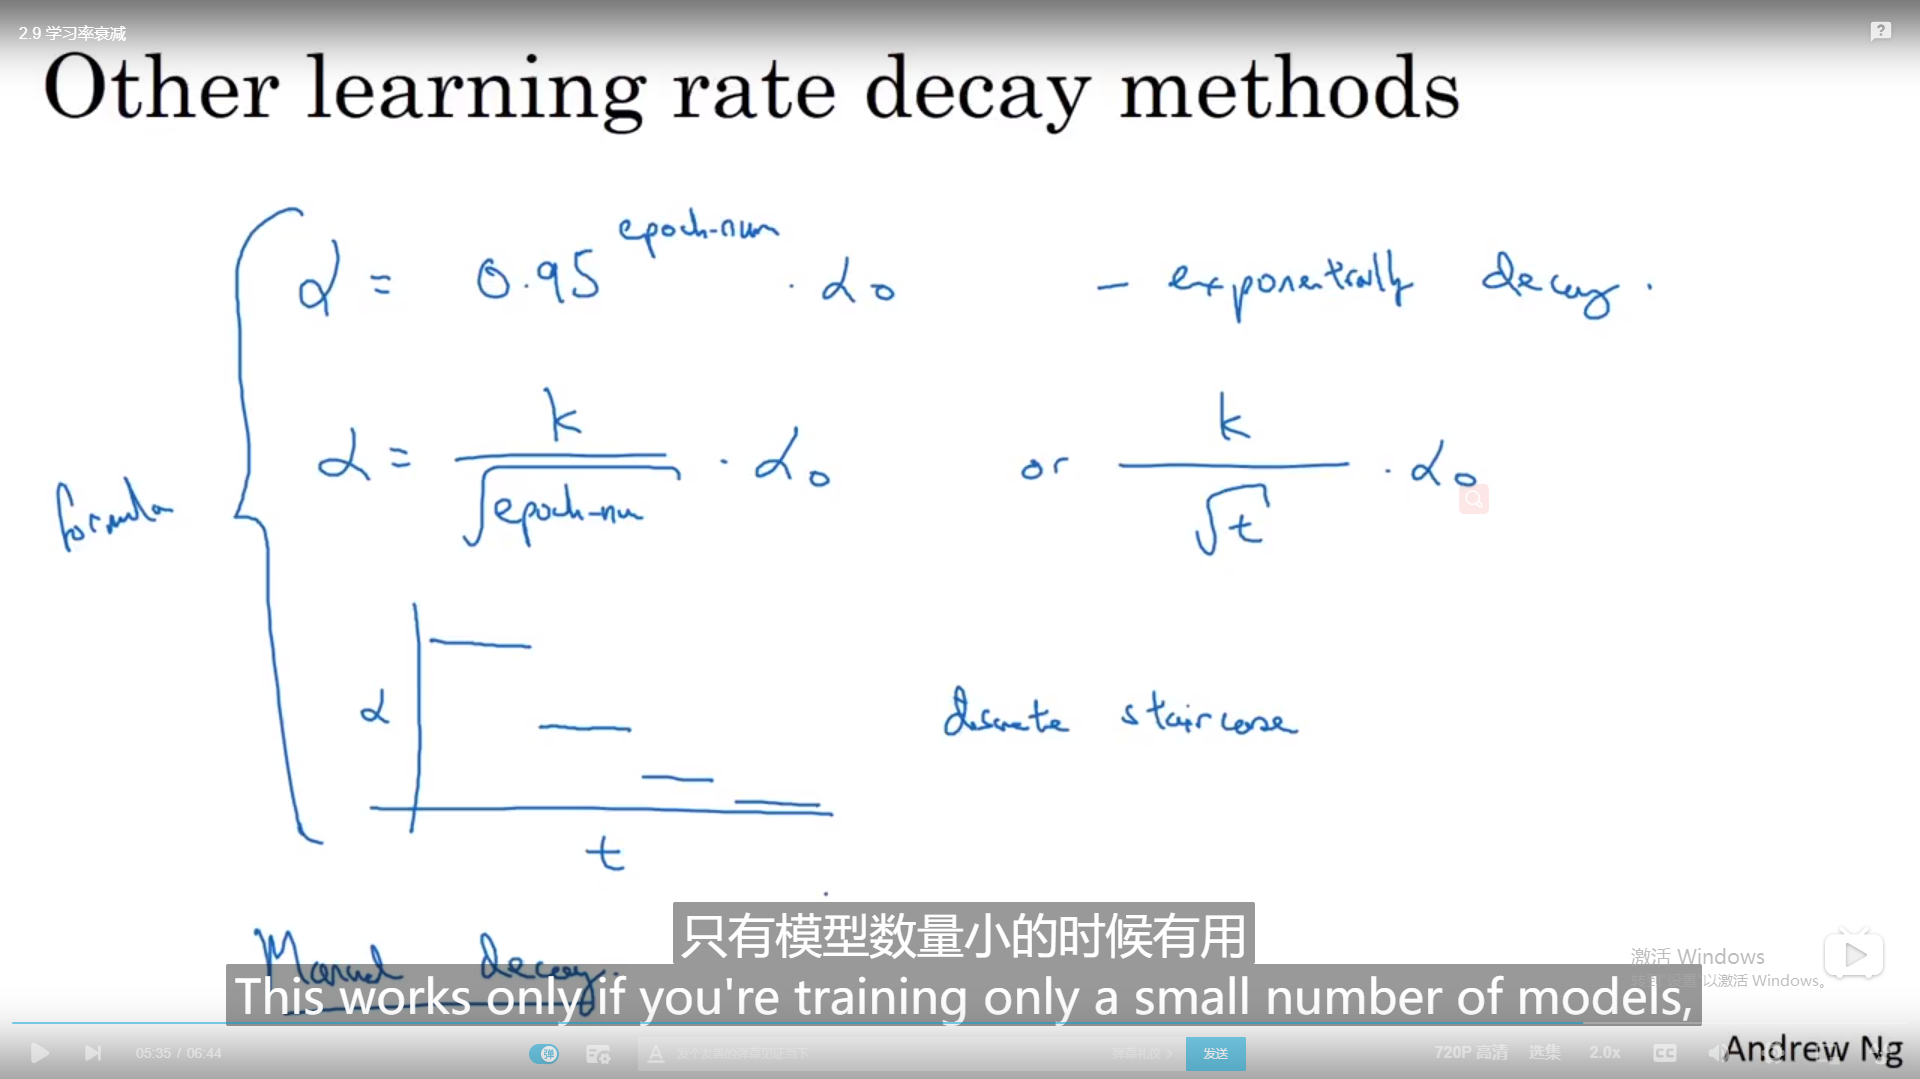 2.9 学习率衰减
Other learning rate decay methods
α = 0.95^epoch-num · α₀ - exponentially decay.
formula
α = k / √epoch-num · α₀ or k / √t · α₀
α
t
discrete staircase
Manual decay.
只有模型数量小的时候有用
This works only if you're training only a small number of models,
激活 Windows
以激活 Windows。
05:35 / 06:44
弹
发个友善的弹幕见证当下
弹幕礼仪 >
发送
720P 高清
选集
2.0x
CC
Andrew Ng